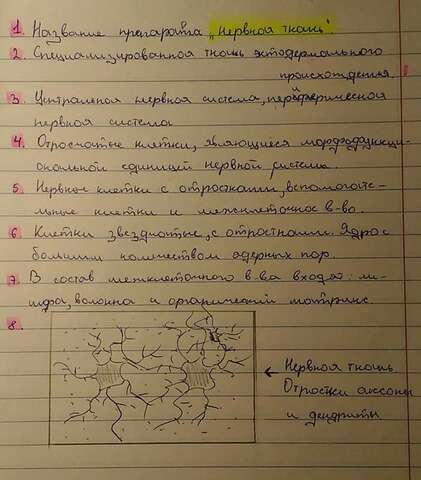 1. Название препарата „Нервная ткань".
2. Специализированная ткань эктодермального
происхождения.
3. Центральная нервная система, периферическая
нервная система
4. Отросчатые клетки, являющиеся морфофункци-
ональной единицей нервной системы.
5. Нервные клетки с отростками, вспомогате-
льные клетки и межклеточное в-во.
6. Клетки звездчатые, с отростками. Ядро с
большим количеством ядерных пор.
7. В состав межклеточного в-ва входят: ли-
мфа, волокна и органический матрикс.
8.
← Нервная ткань
Отростки аксоны
и дендриты